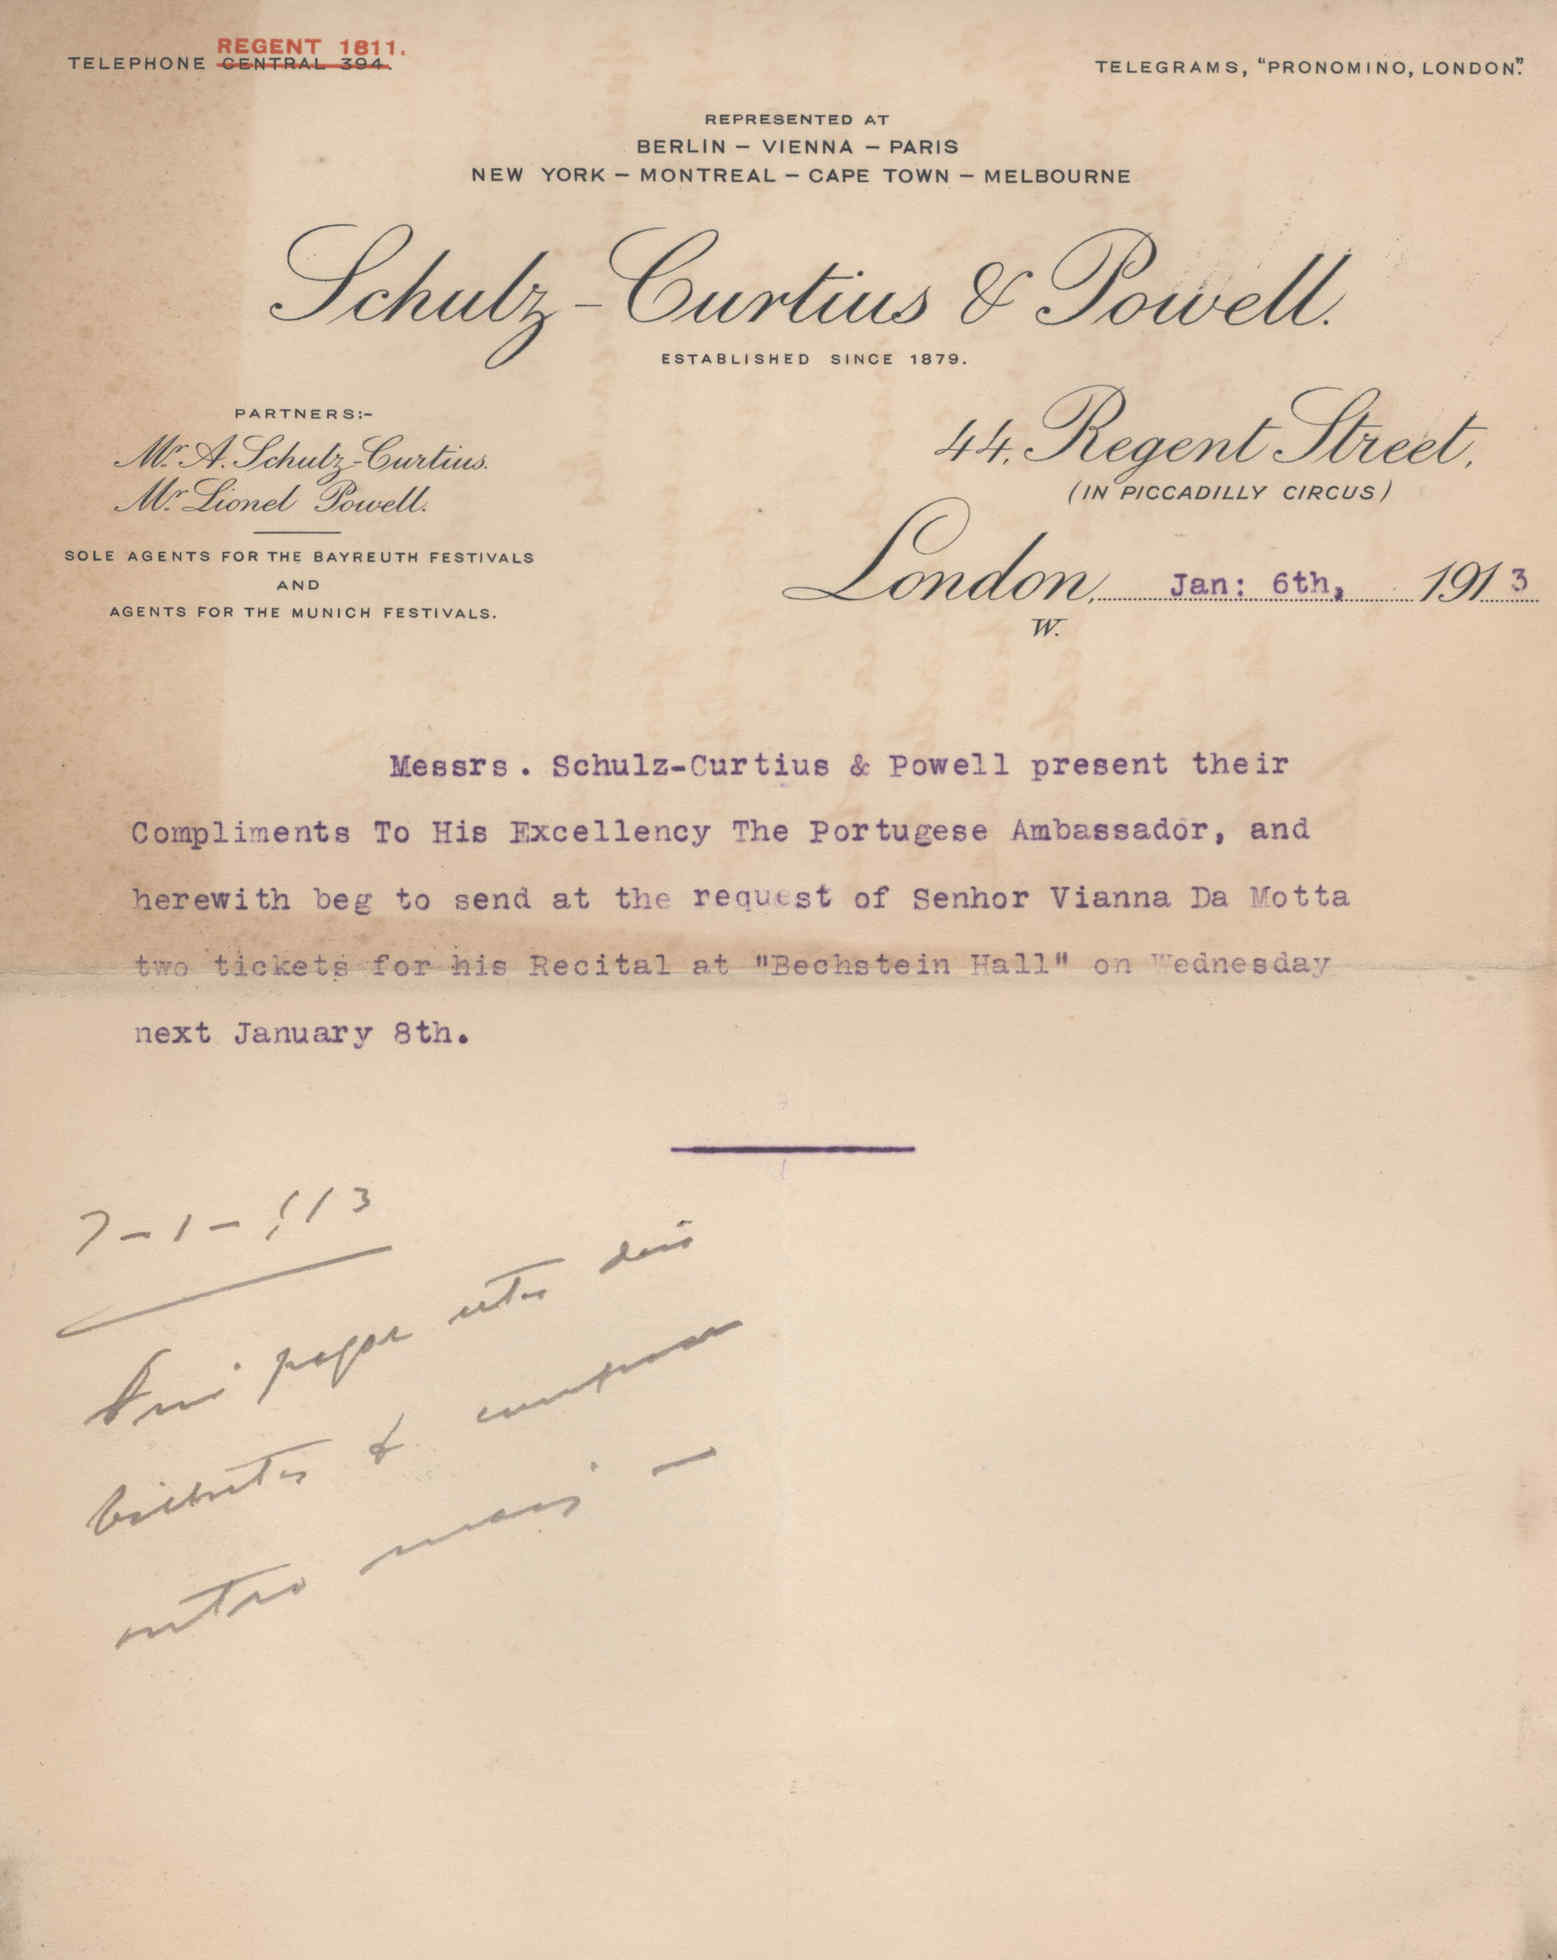 REGENT 1811.
TELEPHONE CENTRAL 394.
TELEGRAMS, "PRONOMINO, LONDON".
REPRESENTED AT
BERLIN – VIENNA – PARIS
NEW YORK – MONTREAL – CAPE TOWN – MELBOURNE
Schulz-Curtius & Powell.
ESTABLISHED SINCE 1879.
PARTNERS:-
Mr. A. Schulz-Curtius.
Mr. Lionel Powell.
SOLE AGENTS FOR THE BAYREUTH FESTIVALS
AND
AGENTS FOR THE MUNICH FESTIVALS.
44, Regent Street,
(IN PICCADILLY CIRCUS)
London, Jan: 6th, 1913
W.
Messrs. Schulz-Curtius & Powell present their
Compliments To His Excellency The Portugese Ambassador, and
herewith beg to send at the request of Senhor Vianna Da Motta
two tickets for his Recital at "Bechstein Hall" on Wednesday
next January 8th.
7-1-913
pagar estes dois
bilhetes & comprar
outro mais –